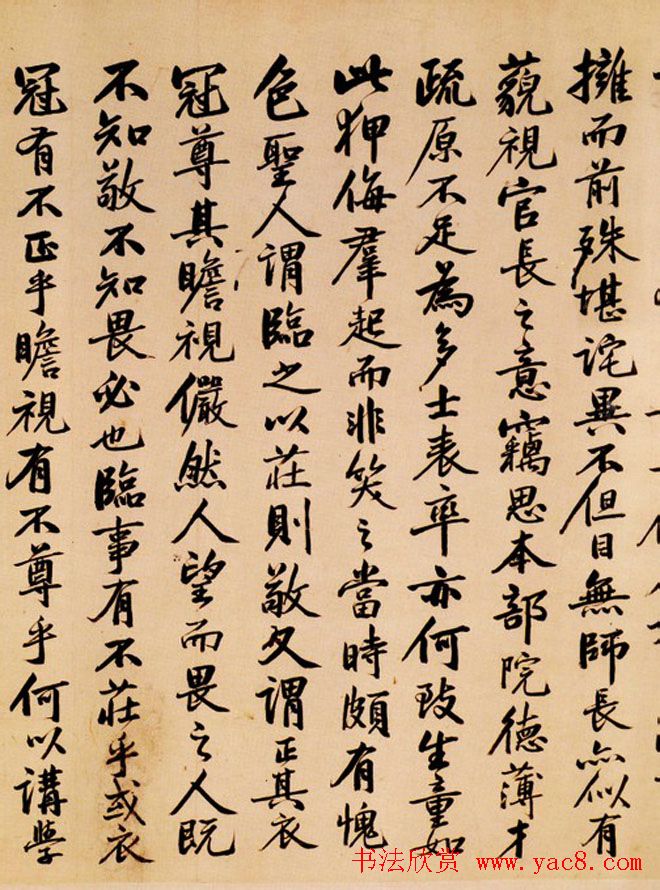 擁而前殊堪詫異不但目無師長亦似有
藐視官長之意竊思本部院德薄才
疏原不足為多士表率亦何致生童如
此狎侮羣起而非笑之當時頗有愧
色聖人謂臨之以莊則敬又謂正其衣
冠尊其瞻視儼然人望而畏之人既
不知敬不知畏必也臨事有不莊乎或衣
冠有不正乎瞻視有不尊乎何以講學
书法欣赏 www.yac8.com